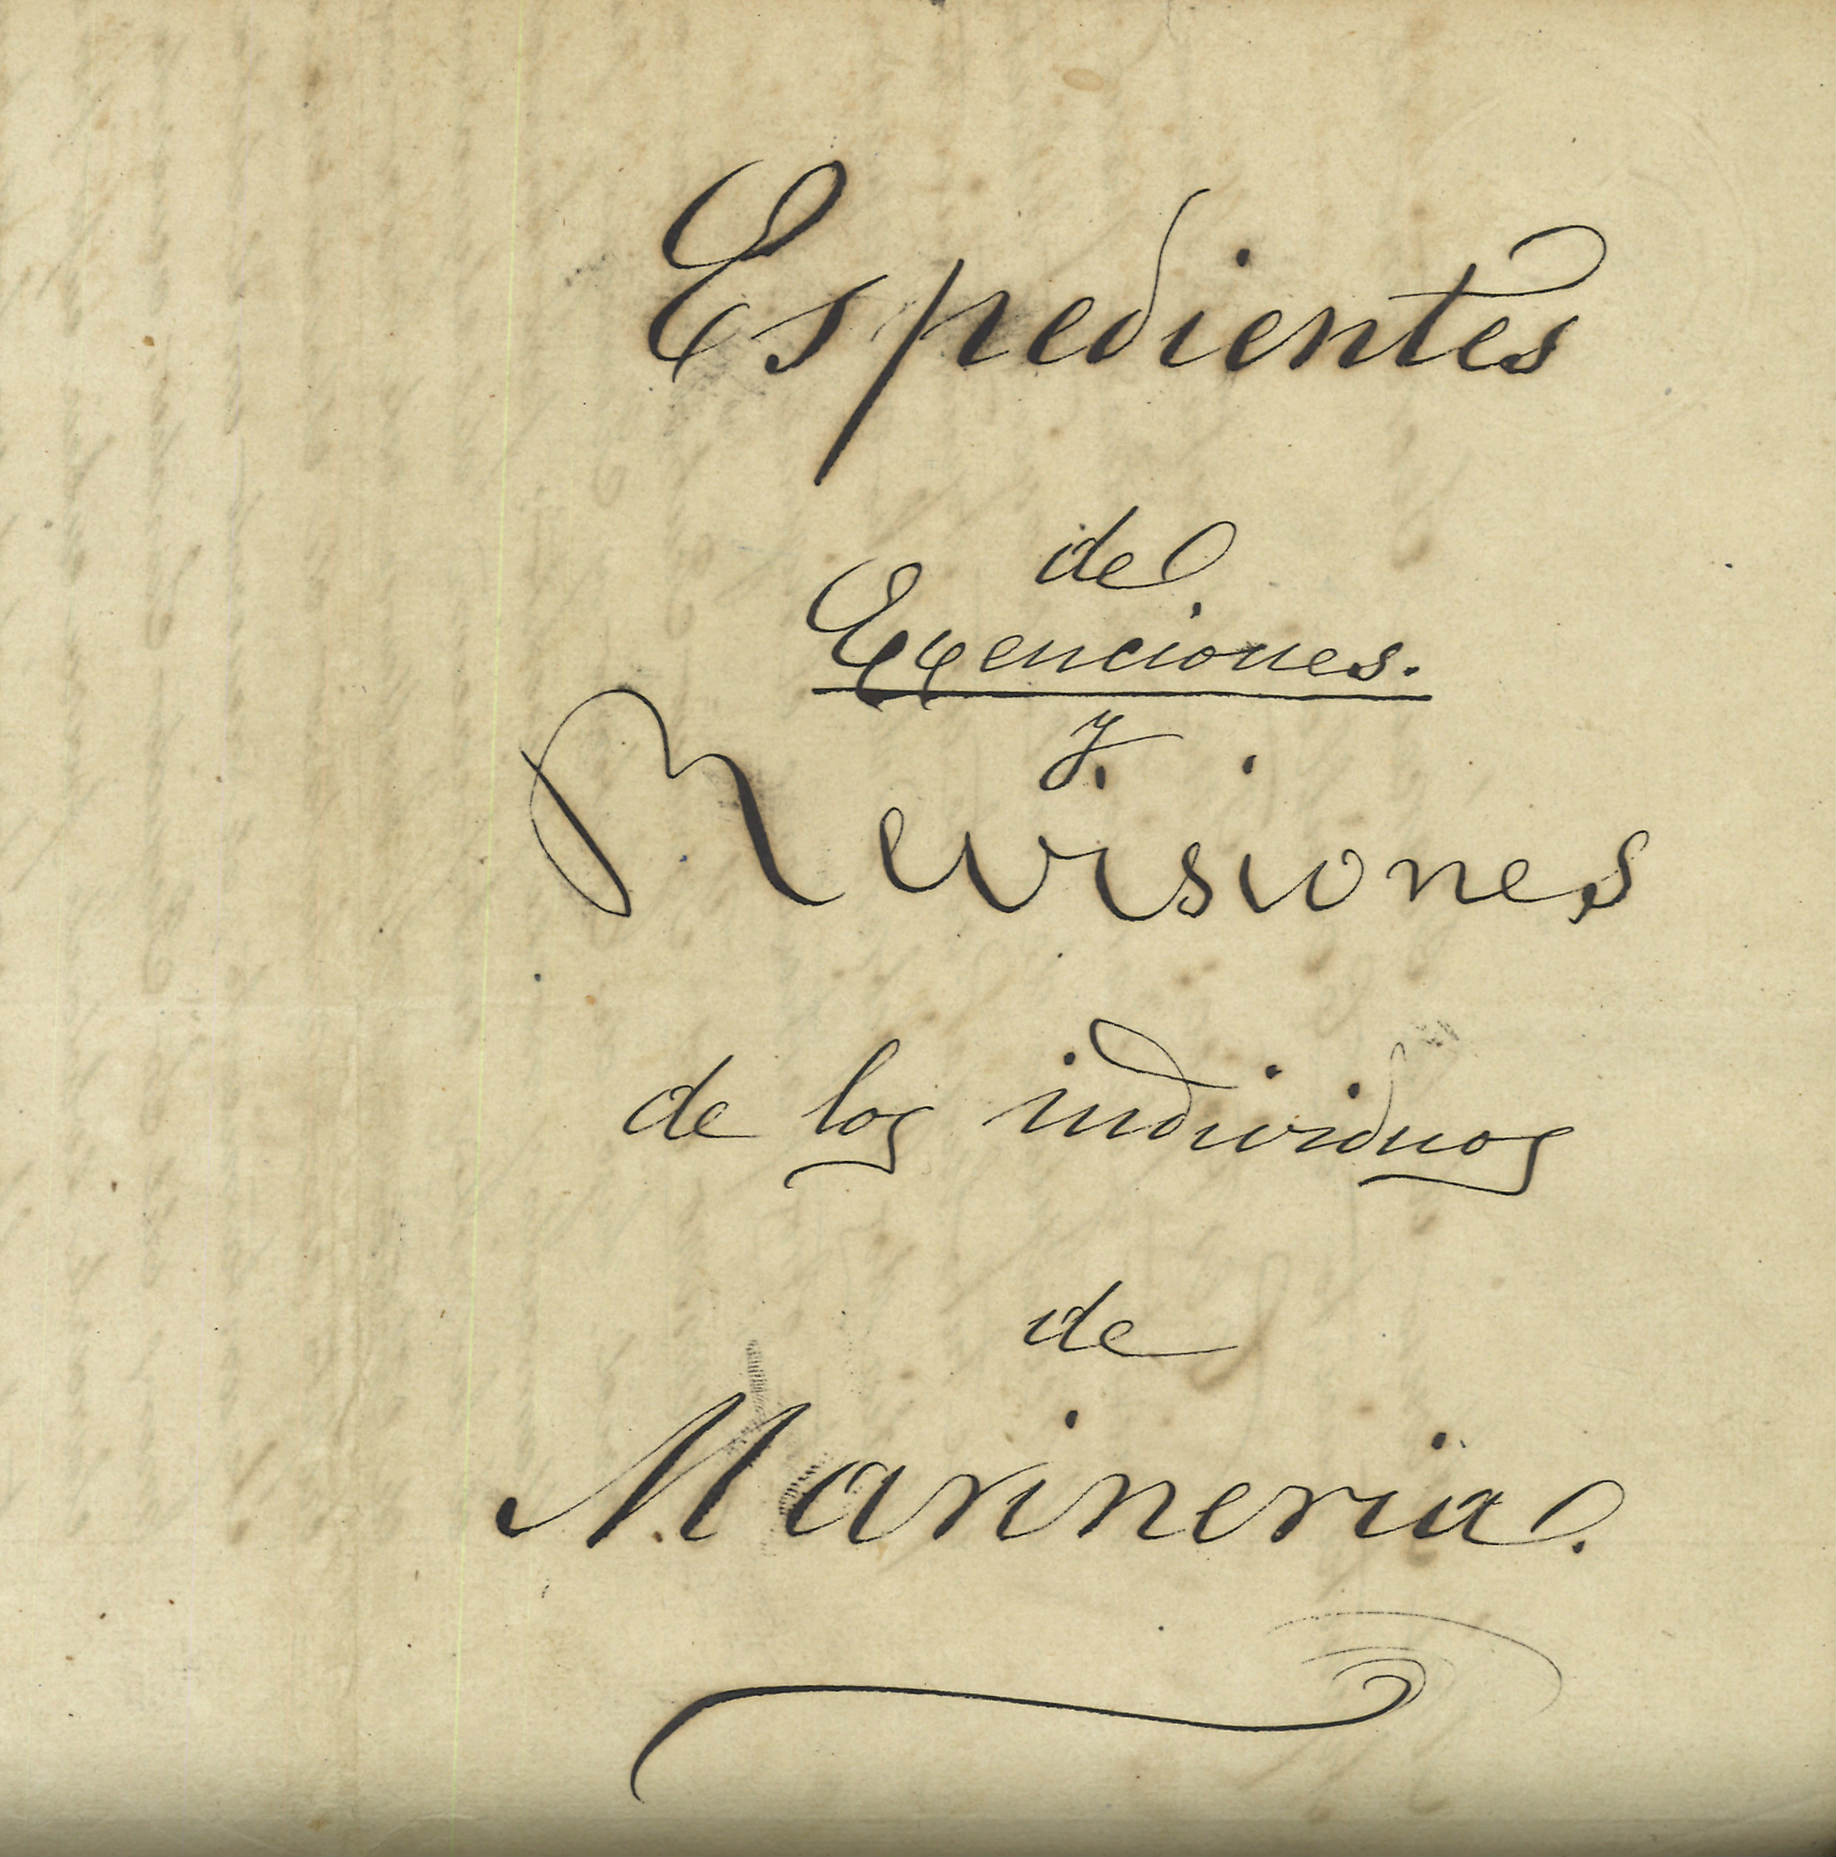 Espedientes
de
Exenciones.
y
Revisiones
de los individuos
de
Marineria.